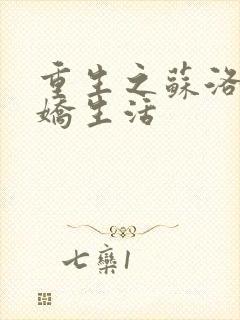 重生之蘇洛
嬌生活
七欒1